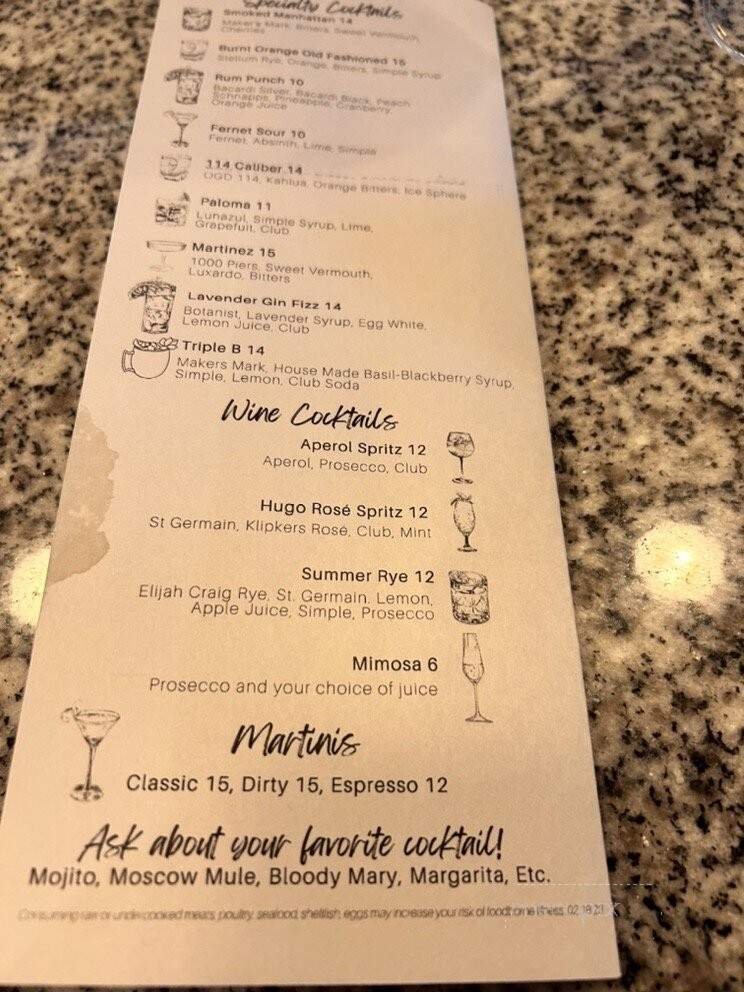 Specialty Cocktails
Smoked Manhattan 14
Makers Mark, Bitters, Sweet Vermouth,
Cherries
Burnt Orange Old Fashioned 15
Stellum Rye, Orange, Bitters, Simple Syrup
Rum Punch 10
Bacardi Silver, Bacardi Black, Peach
Schnapps, Pineapple, Cranberry,
Orange Juice
Fernet Sour 10
Fernet, Absinth, Lime, Simple
114 Caliber 14
OGD 114, Kahlua, Orange Bitters, Ice Sphere
Paloma 11
Lunazul, Simple Syrup, Lime,
Grapefuit, Club
Martinez 15
1000 Piers, Sweet Vermouth,
Luxardo, Bitters
Lavender Gin Fizz 14
Botanist, Lavender Syrup, Egg White,
Lemon Juice, Club
Triple B 14
Makers Mark, House Made Basil-Blackberry Syrup,
Simple, Lemon, Club Soda
Wine Cocktails
Aperol Spritz 12
Aperol, Prosecco, Club
Hugo Rosé Spritz 12
St Germain, Klipkers Rosé, Club, Mint
Summer Rye 12
Elijah Craig Rye, St. Germain, Lemon,
Apple Juice, Simple, Prosecco
Mimosa 6
Prosecco and your choice of juice
Martinis
Classic 15, Dirty 15, Espresso 12
Ask about your favorite cocktail!
Mojito, Moscow Mule, Bloody Mary, Margarita, Etc.
Consuming raw or undercooked meats, poultry, seafood, shellfish, eggs may increase your risk of foodborne illness.